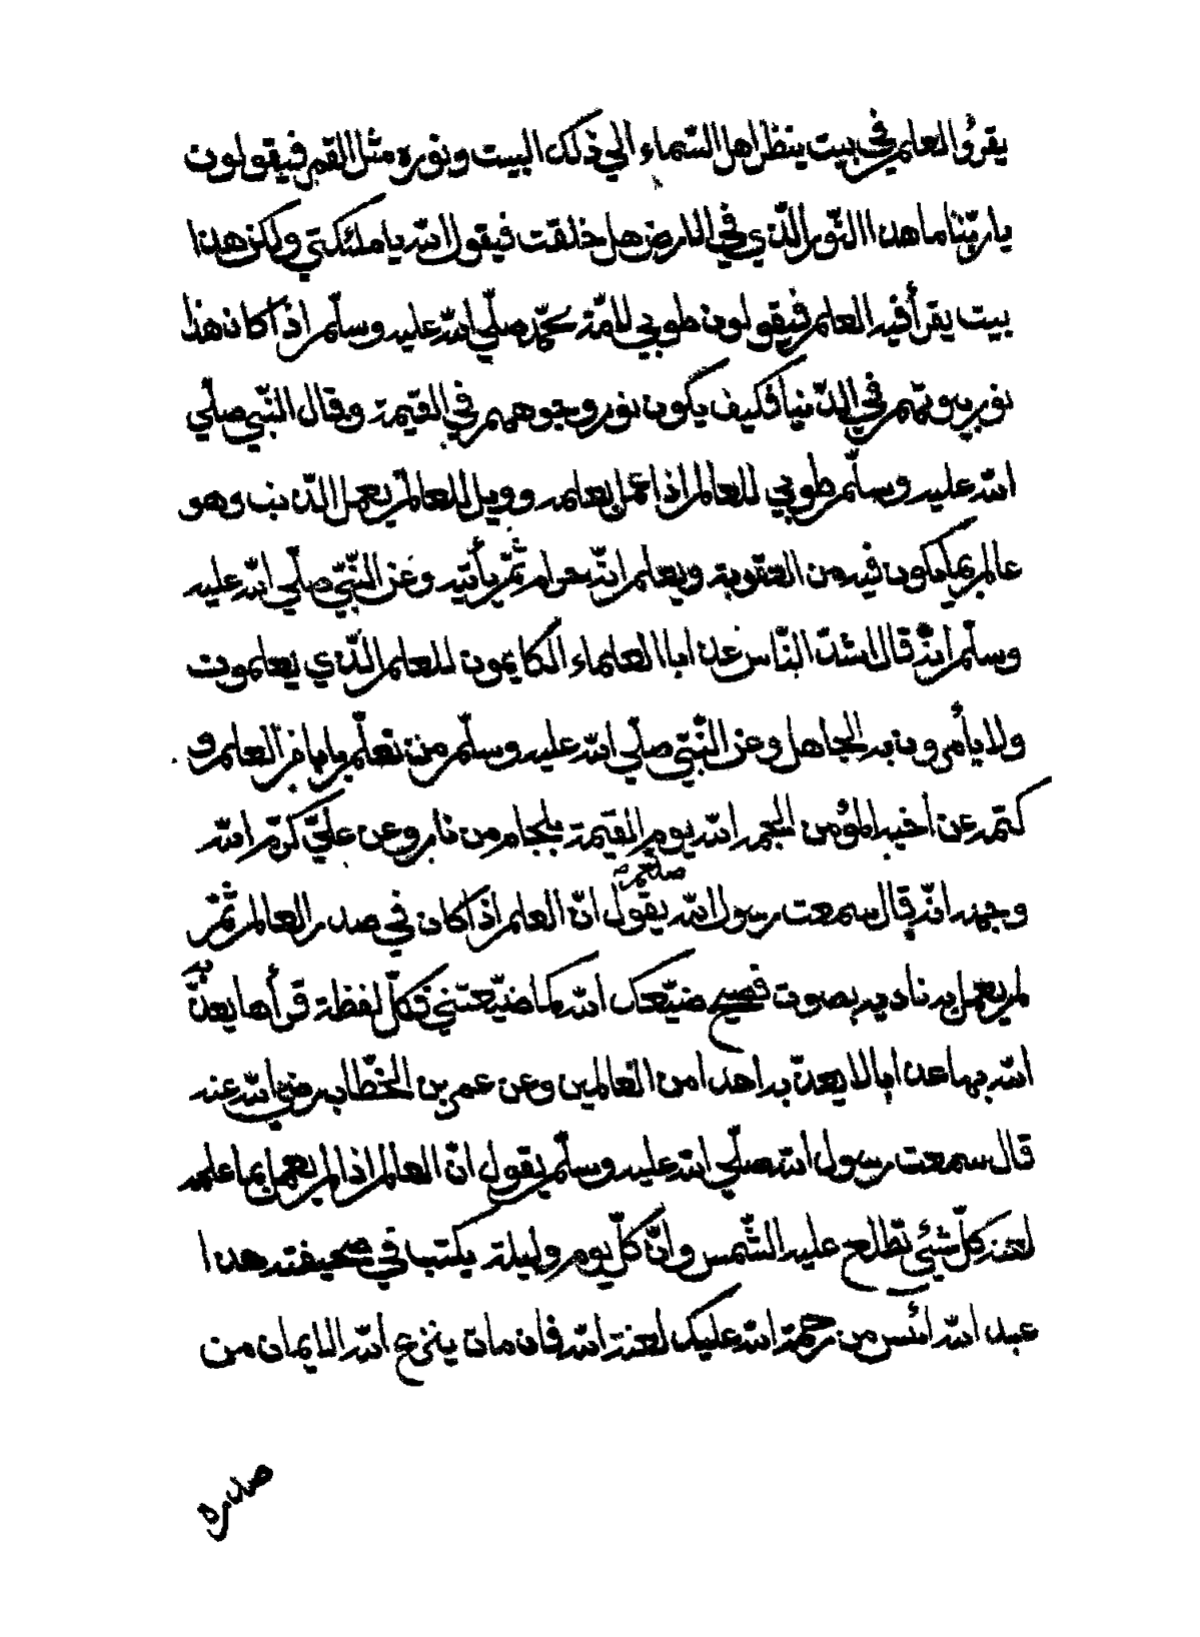 يقرؤا العلم في بيت ينظر اهل السّماء الي ذلك البيت ونوره مثل القمر فيقولون
يا ربّنا ما هذا النّور الذّي في الارض هل خلقت فيقول اللّه يا ملئكتي ولكن هذا
بيت يقرأ فيه العلم فيقولون طوبي لامّة محمّد صلّي اللّه عليه وسلّم اذا كان هذا
نور بيوتهم في الدّنيا فكيف يكون نور وجوههم في القيمة وقال النّبي صلّي
اللّه عليه وسلّم طوبي للعالم اذا عمل بعلمه وويل للعالم يعمل الذّنب وهو
عالم بما يكون فيه من العقوبة ويعلم انّه حرام ثمّ يأتيه وعن النّبيّ صلّي اللّه عليه
وسلّم انّه قال اشدّ النّاس عذابا العلماء الكايمون للعلم الذّي يعلمون
ولا يأمرون به الجاهل وعن النّبيّ صلّي اللّه عليه وسلّم من تعلّم بابا من العلم و
كتمه عن اخيه المؤمن الجمه اللّه يوم القيمة بلجام من نار وعن عليّ كرّم اللّه
وجهه انّه قال سمعت رسول اللّه صلعم يقول انّ العلم اذا كان في صدر العالم ثمّ
لم يعمل به ناديه بصوت فصيح ضيّعك اللّه كما ضيّعتني فكلّ لفظة قرأها يعذّبه
اللّه بها عذابا لا يعذّبه احدا من العالمين وعن عمر بن الخطّاب رضي اللّه عنه
قال سمعت رسول اللّه صلّي اللّه عليه وسلّم يقول انّ العالم اذا لم يعمل بما علمه
لعنه كلّ شيئ تطلع عليه الشّمس وانّ كلّ يوم وليلة يكتب في صحيفته هذا
عبد اللّه ائس من رحمة اللّه عليك لعنة اللّه فان مات ينزع اللّه الايمان من
صدره